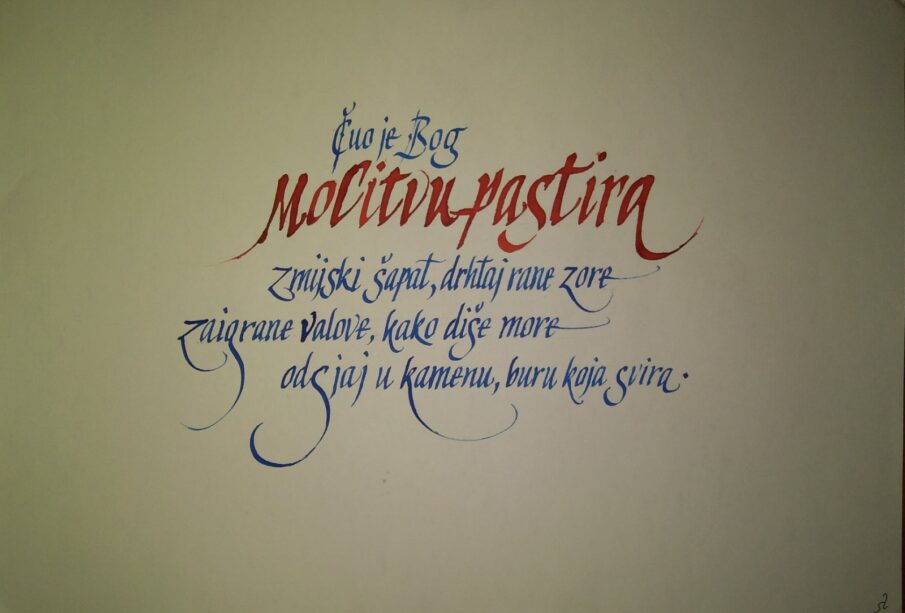 Čuo je Bog
Molitvu pastira
zmijski šapat, drhtaj rane zore
zaigrane valove, kako diše more
odsjaj u kamenu, buru koja svira.